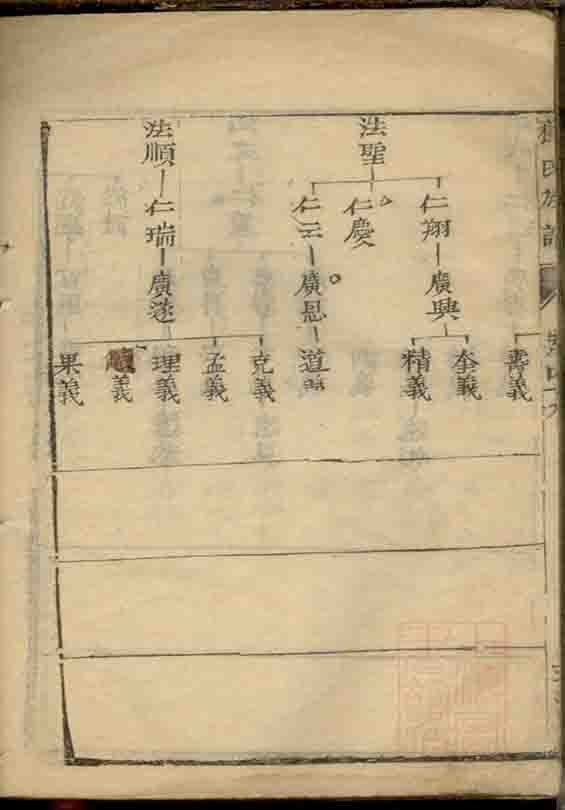 法聖
仁翔
廣興
壽義
奎義
精義
仁慶
仁云
廣恩
道
法順
仁瑞
廣遂
克義
孟義
理義
義
果義
氏族譜